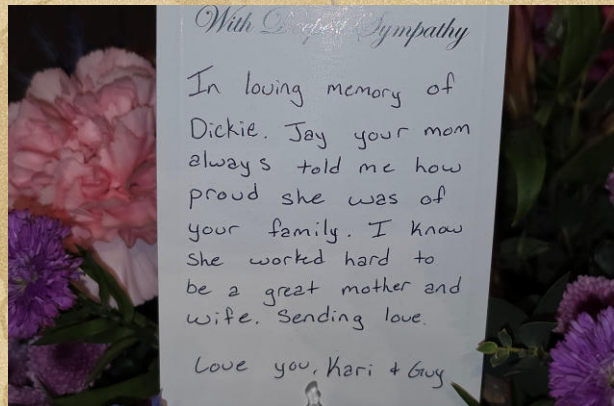 With Deepest Sympathy
In loving memory of
Dickie. Jay your mom
always told me how
proud she was of
your family. I know
she worked hard to
be a great mother and
wife. Sending love.
Love you, Kari & Guy